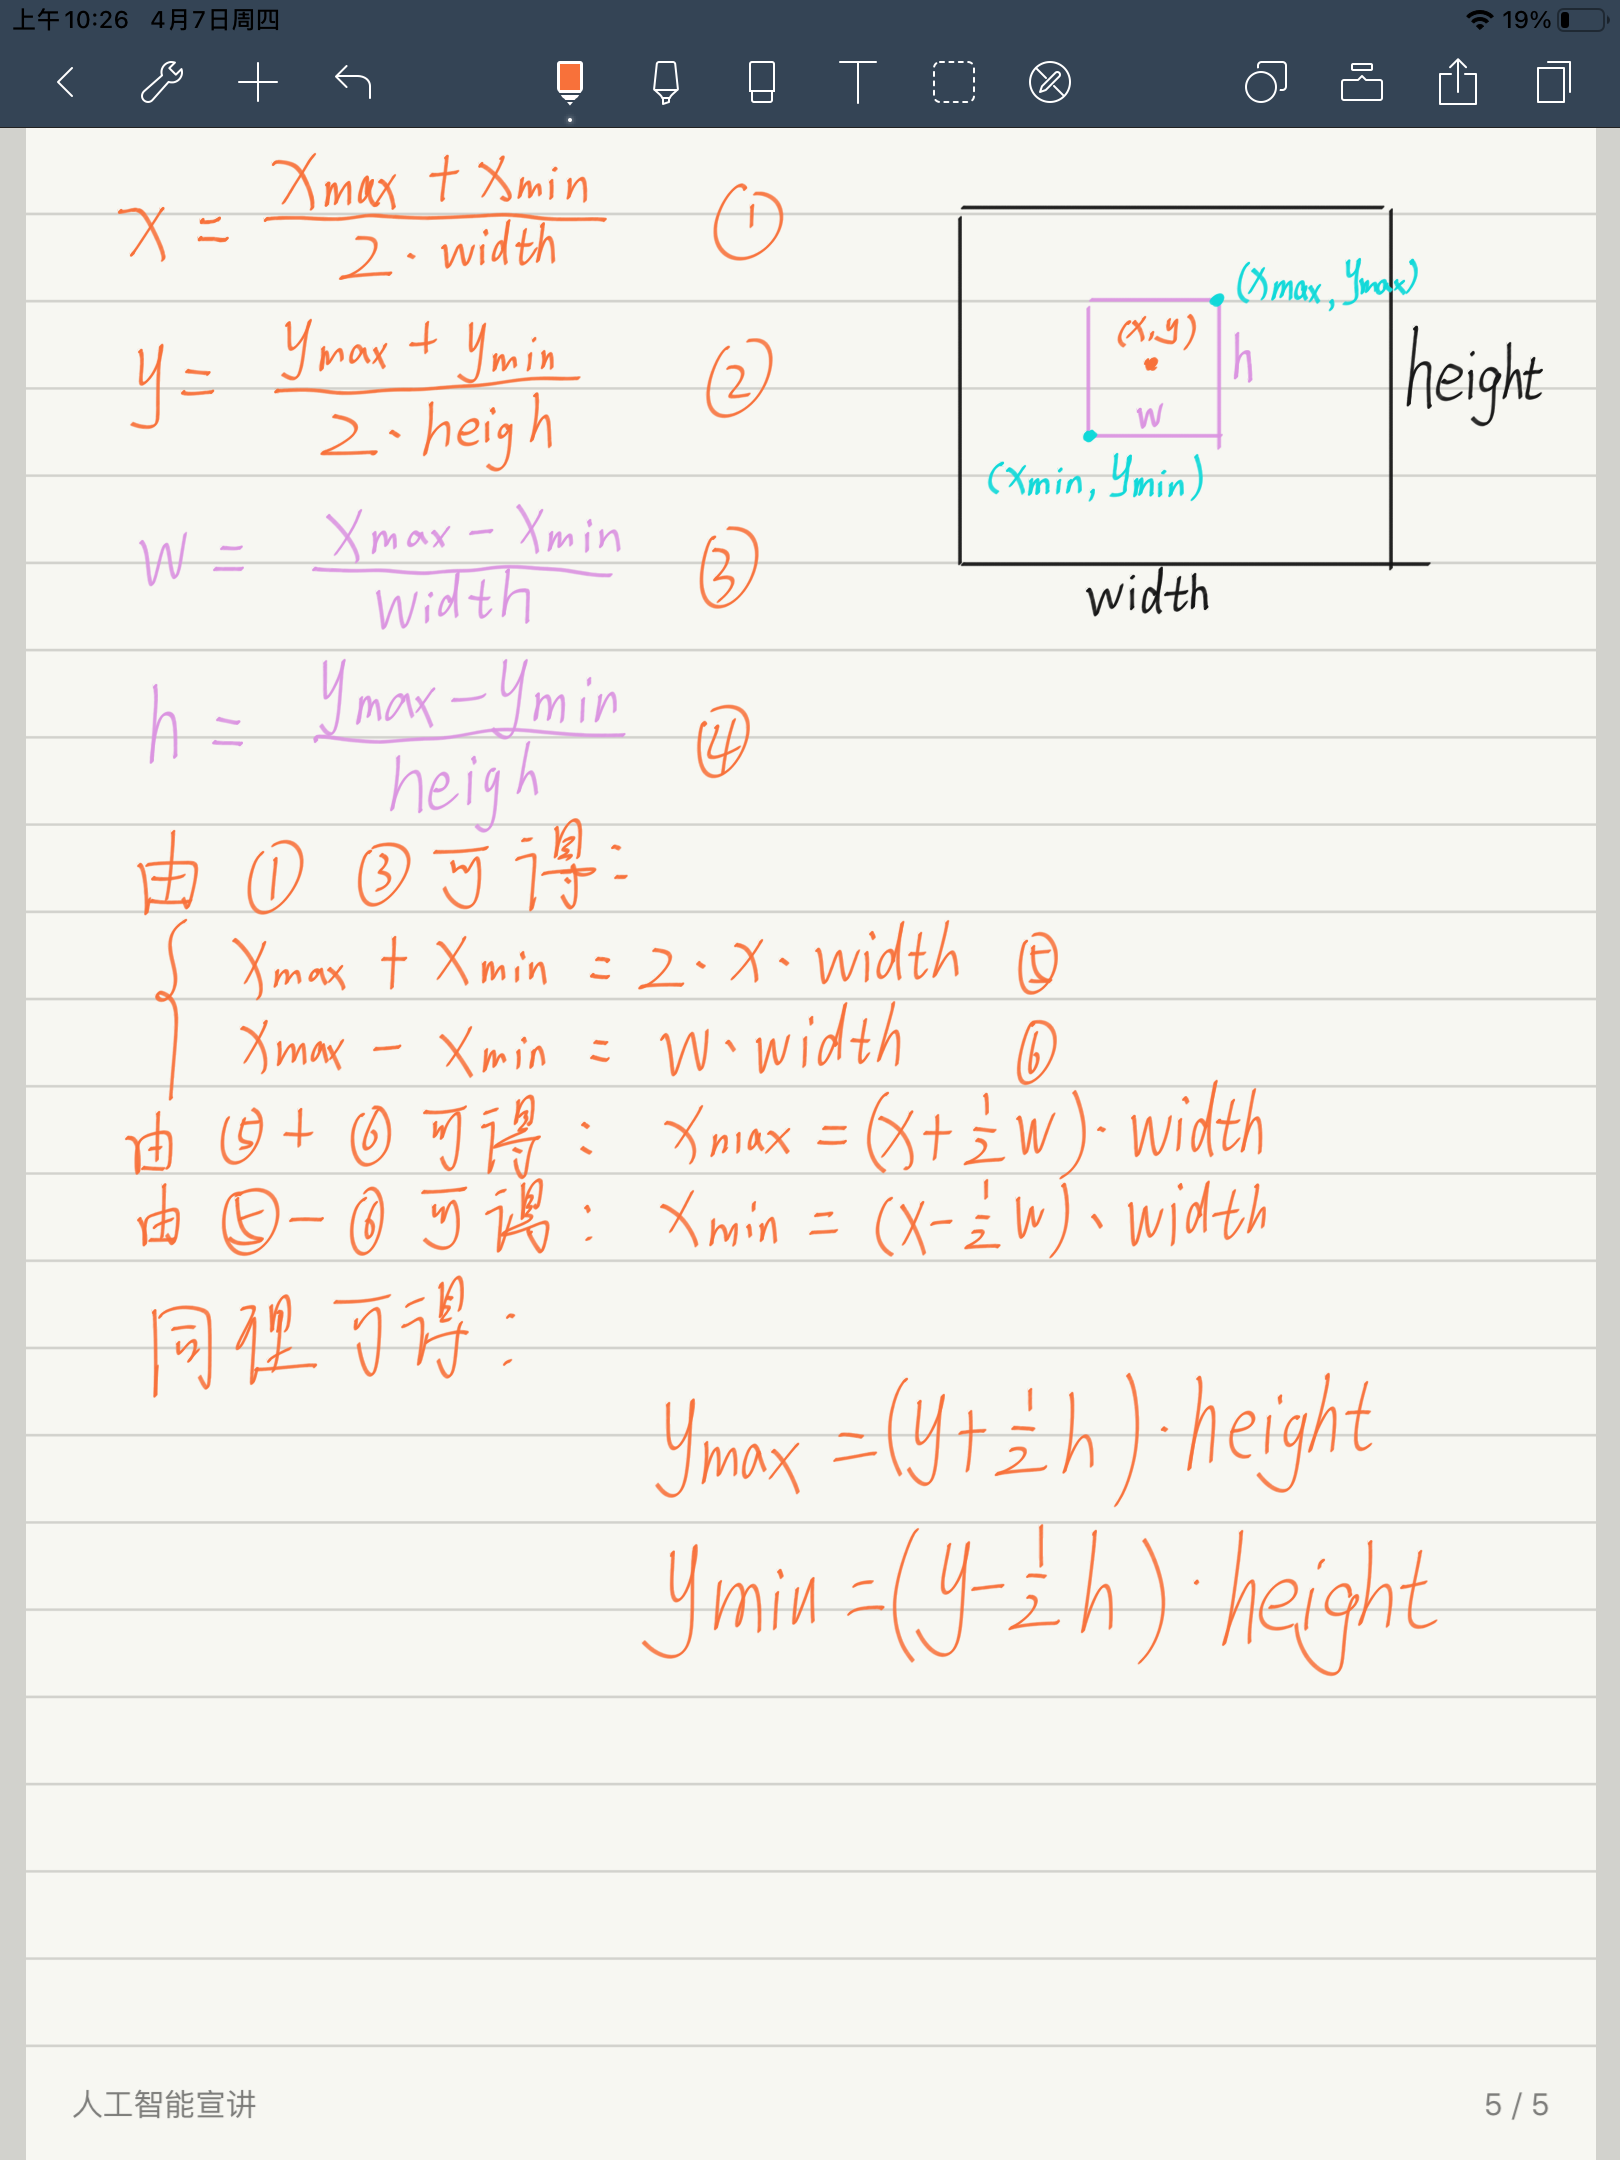 上午10:26 4月7日周四 19%
x = (xmax + xmin) / (2 · width) ①
y = (ymax + ymin) / (2 · heigh) ②
w = (xmax − xmin) / width ③
h = (ymax − ymin) / heigh ④
(xmax, ymax)
(x,y)
h
height
w
(xmin, ymin)
width
由 ① ③ 可得:
{ xmax + xmin = 2 · x · width ⑤
xmax − xmin = w · width ⑥
由 ⑤ + ⑥ 可得: xmax = (x + 1/2 w) · width
由 ⑤ − ⑥ 可得: xmin = (x − 1/2 w) · width
同理可得:
ymax = (y + 1/2 h) · height
ymin = (y − 1/2 h) · height
人工智能宣讲 5 / 5